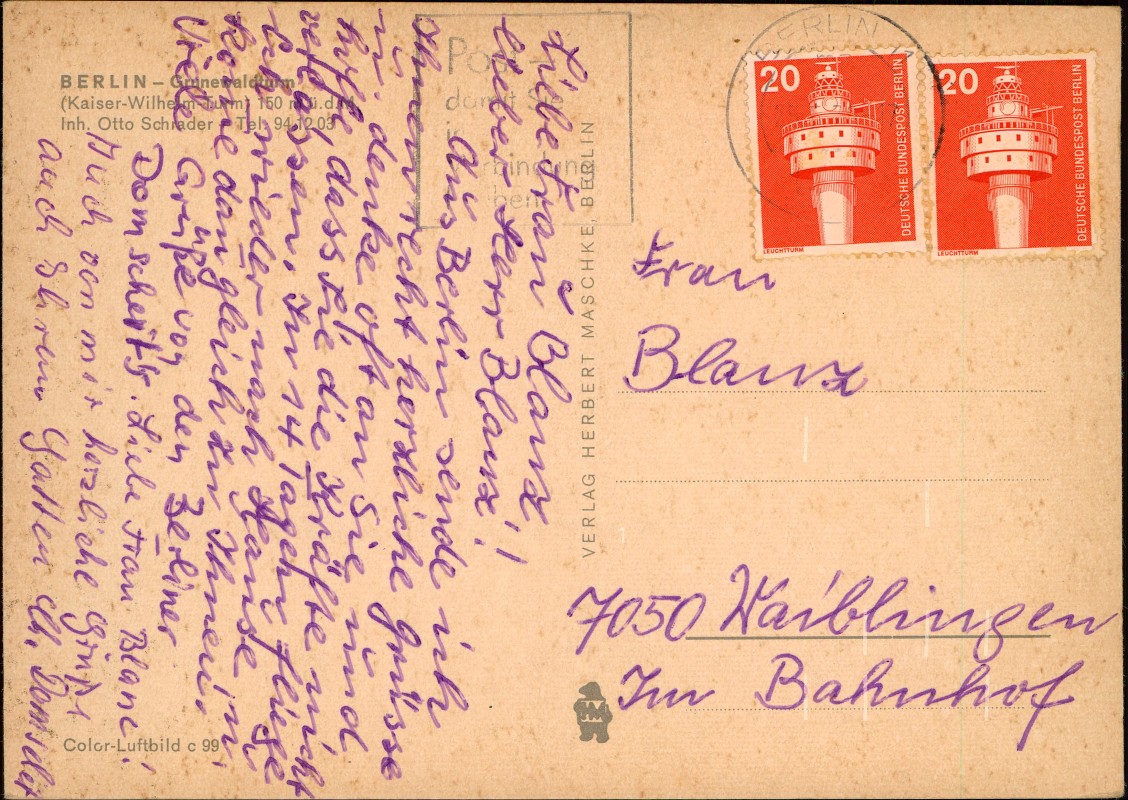 BERLIN – Grunewaldturm
(Kaiser-Wilhelm-Turm) 150 m ü.d.M.
Inh. Otto Schrader – Tel. 94 12 03
Liebe Frau Blanz
lieber Herr Blanz!
Aus Berlin sende ich
Ihnen recht herzliche Grüsse
denke oft an Sie und
hoffe, dass Sie die Kräfte nicht
verlassen. In 14 Tagen fliege
ich wieder nach Hause
komme dan gleich zu Ihnen
Viele Grüße von den Berliner
Domscheits. Liebe Frau Blanz!
Auch von mir herzliche Grüße
auch Ihrem Gatten
Color-Luftbild c 99
VERLAG HERBERT MASCHKE, BERLIN
Post
damit Sie
Verbindung
BERLIN
20
DEUTSCHE BUNDESPOST BERLIN
LEUCHTTURM
20
DEUTSCHE BUNDESPOST BERLIN
LEUCHTTURM
Frau
Blanz
7050 Waiblingen
Im Bahnhof